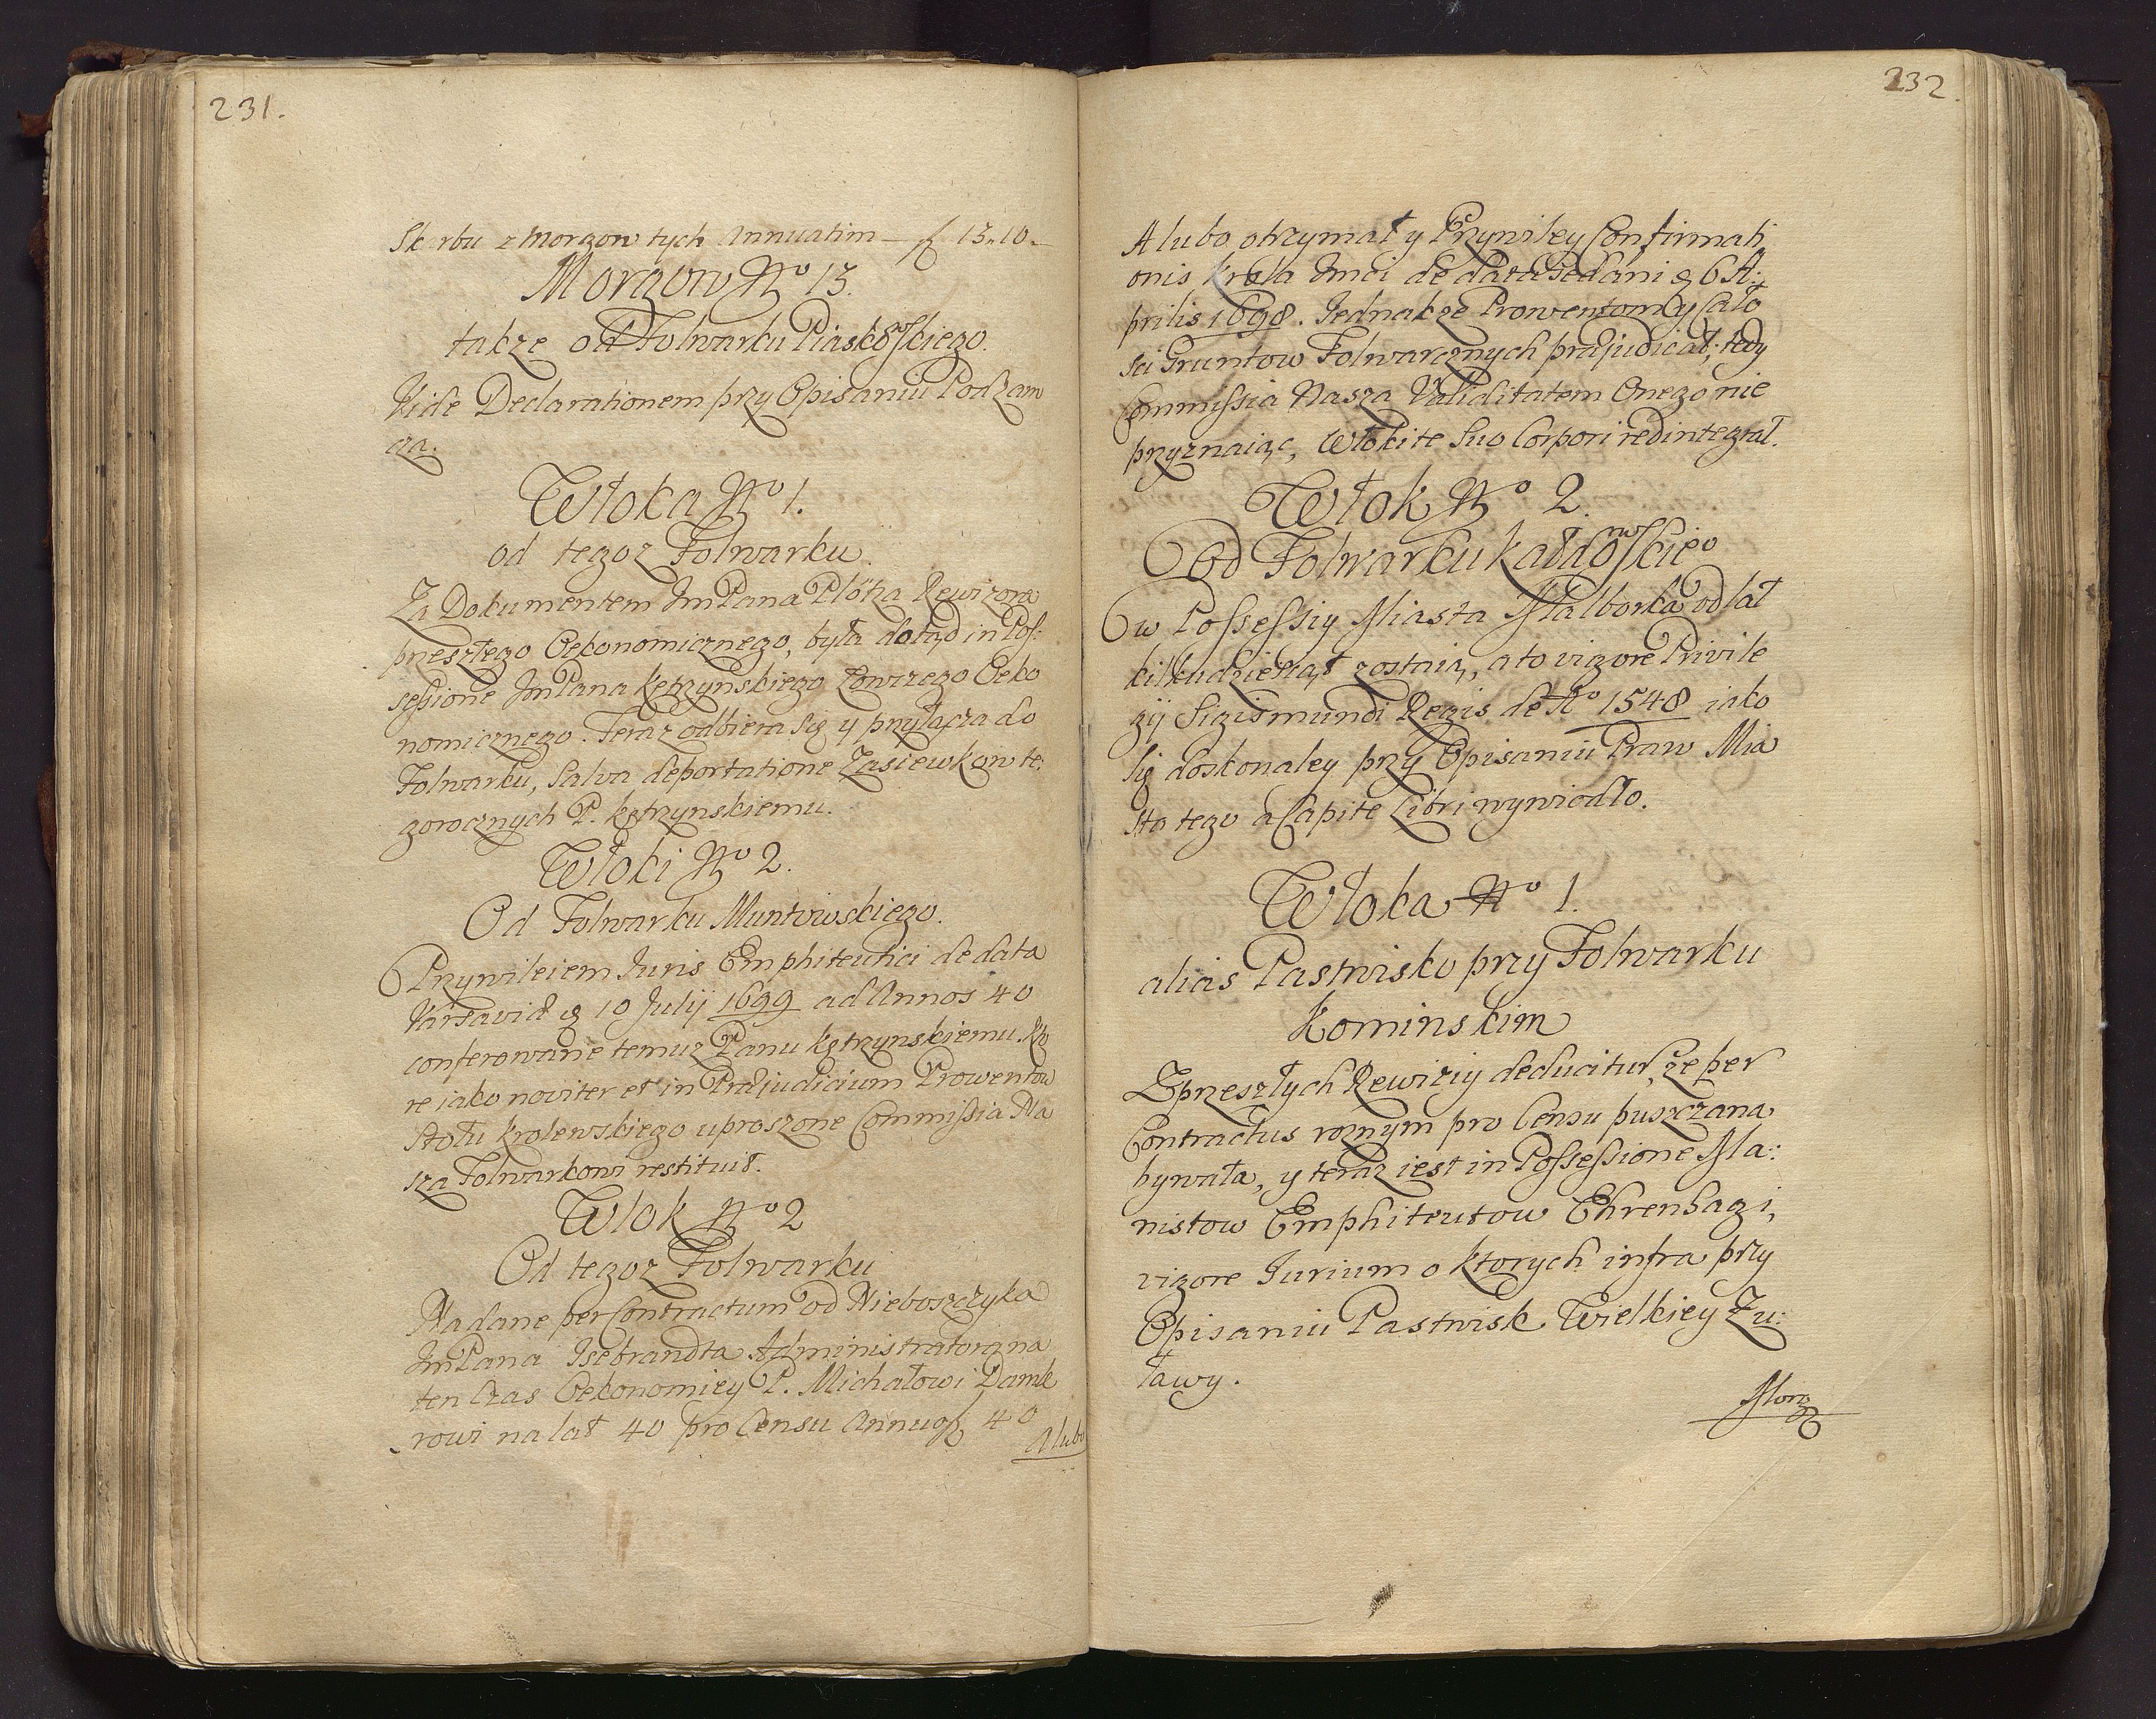 231.
Skarbu z Morgow tych Annuatim — fl 13„10„
Morgow No 13.
także od Folwarku Piaskowskiego.
Vide Declarationem przy Opisaniu Podzam
cza.
Włoka No 1.
od tegoż Folwarku.
Za Dokumentem ImPana Plötza Rewizora
przeszłego Oekonomicznego, była dotąd in Pos:
sessione ImPana Kętrzynskiego Łowczego Oeko
nomicznego. Teraz odbiera się y przyłącza do
Folwarku, Salva deportatione Zasiewkow te:
gorocznych P. Kętrzynskiemu.
Włoki No 2.
Od Folwarku Muntowskiego.
Przywileiem Juris Emphiteutici de data
Varsaviæ 10 Julij 1699 ad Annos 40
conferowane temuż Panu Kętrzynskiemu. Kto
re iako noviter et in Præjudicium Prowentow
Stołu Krolewskiego uproszone Commissia Na
sza Folwarkowi restituit.
Włok No 2
Od tegoż Folwarku
Nadane per Contractum od Nieboszczyka
ImPana Isebrandta Administratora na
ten Czas Oekonomiey P. Michałowi Damk
rowi na lat 40 pro Censu Annuo fl 40
Alubo
232.
Alubo otrzymał y Przywiley Confirmati
onis Krola Jmci de data Gedani 6 A:
prilis 1698. Jednakże Prowentom y Cało
sci Gruntow Folwarcznych præjudicat; tedy
Commissia Nasza Validitatem Onego nie
przyznaiąc, Włoki te Suo Corpori redintegrat.
Włok No 2.
Od Folwarku Kałdowskieo
w Possessiy Miasta Malborka od lat
kilkudziesiąt zostaią, a to vigore Privile
gij Sigismundi Regis de Ao 1548 iako
się doskonaley przy Opisaniu Praw Mia
sta tego a Capite Libri wywiodło.
Włoka No 1.
alias Pastwisko przy Folwarku
Kominskim
Z przeszłych Rewiziy deducitur, że per
Contractus roznym pro Censu puszczana
bywała, y teraz iest in Possessione Ma:
nistow Emphiteutow Ehrenhagi,
vigore Jurium o ktorych infra przy
Opisaniu Pastwisk Wielkiey Zu:
ławy.
Morg